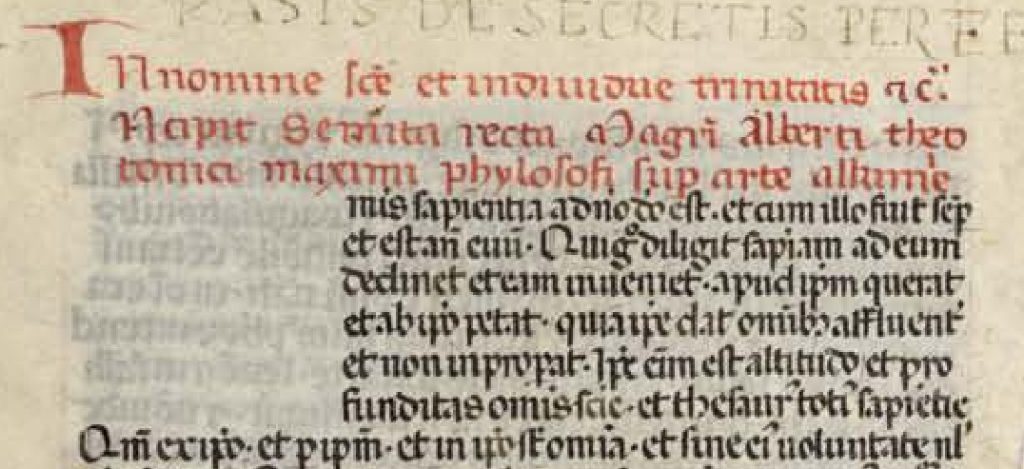 RASIS DE SECRETIS PER
IN nomine sc̄e et indiuidue trinitatis ⁊ c̄.
INcipit Semita recta Magr̄i Alberti theo
tonici maximi phylosofi sup̄ arte alkimie
mis sapientia a dn̄o do est. et cum illo fuit sēp
et est an̄ euū. Quigͦ diligit sapiam̄ ad eum
declinet et eam inueniet. apud ip̄m querat
et ab ip̄o petat. quia ip̄e dat omībꝫ affluent᷑
et non inproꝑat. Ip̄e em̄ est altitudo et pro
funditas om̄is scīe. et thesaur᷒ toti᷒ sapiētie
Qm̄ ex ip̄o. et p ip̄m. et in ip̄o st̄ omīa. et sine ei᷒ uoluntate nl̄